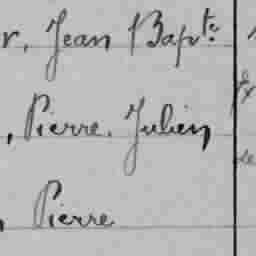 r, Jean Bapte
, Pierre, Julien
Pierre